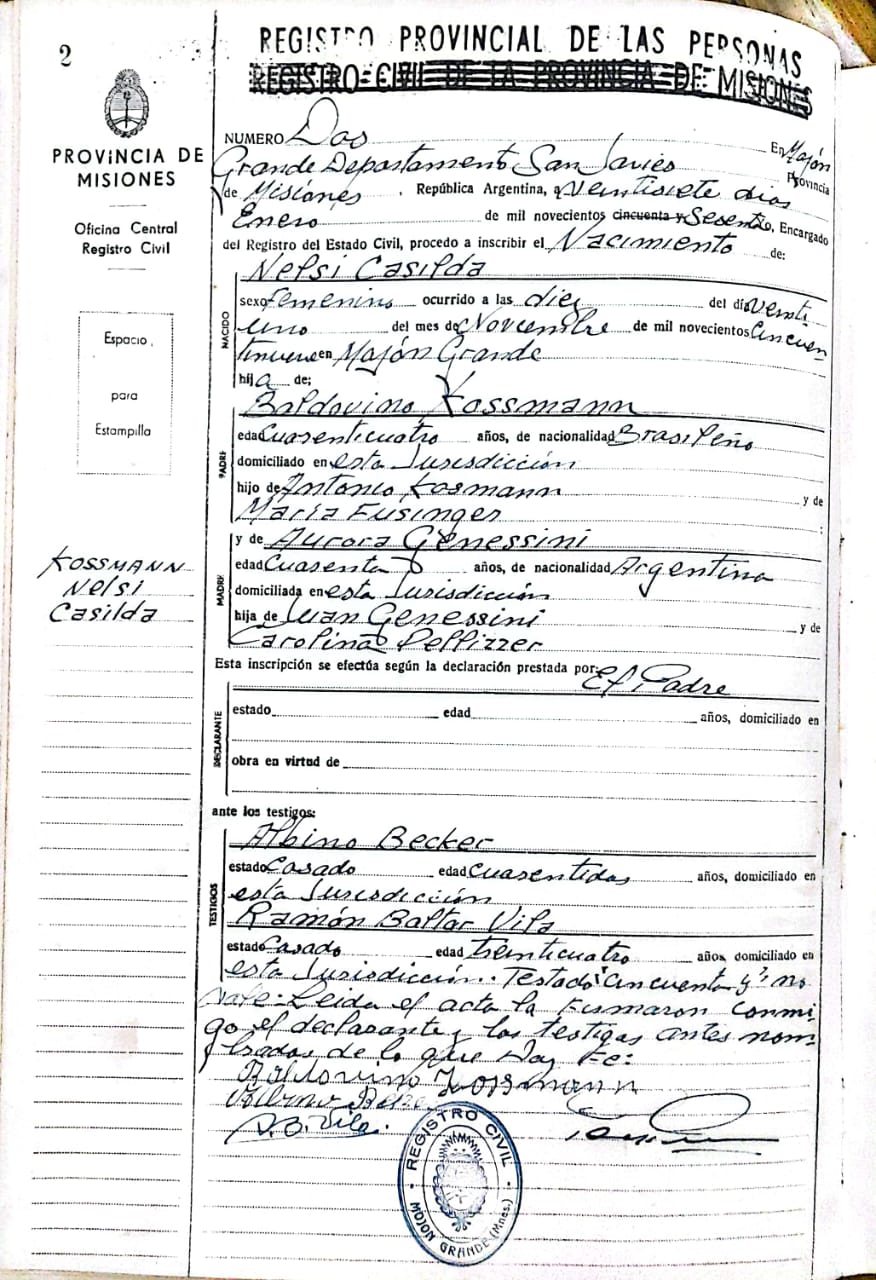 2
REGISTRO PROVINCIAL DE LAS PERSONAS
REGISTRO CIVIL DE LA PROVINCIA DE MISIONES
PROVINCIA DE
MISIONES
Oficina Central
Registro Civil
Espacio
para
Estampilla
KOSSMANN
Nelsi
Casilda
NUMERO Dos En Mojón
Grande Departamento San Javier Provincia
de Misiones, República Argentina, a Veintisiete días
Enero de mil novecientos cincuenta y Sesenta, Encargado
del Registro del Estado Civil, procedo a inscribir el Nacimiento de:
NACIDO
Nelsi Casilda
sexo femenino ocurrido a las diez del día Venti
uno del mes de Noviembre de mil novecientos Cincuen
tinueve en Mojón Grande
hija de;
PADRE
Baldovino Kossmann
edad Cuarenticuatro años, de nacionalidad Brasileño
domiciliado en esta Jurisdicción
hijo de Antonio Kosmann y de
María Eusinger :
MADRE
y de Aurora Genessini
edad Cuarenta años, de nacionalidad Argentina
domiciliada en esta Jurisdicción
hija de Juan Genessini y de
Carolina Pellizzer
Esta inscripción se efectúa según la declaración prestada por: El Padre
DECLARANTE
estado edad años, domiciliado en
obra en virtud de
ante los testigos:
TESTIGOS
Albino Becker
estado Casado edad cuarentidos años, domiciliado en
esta Jurisdicción
Ramón Baltar Vila
estado Casado edad treinticuatro años, domiciliado en
esta Jurisdicción. Testado "Cincuenta y" no
vale: Leida el acta la Firmaron conmi
go el declarante y los testigos antes nom
brados de lo que Doy Fe:
Baldovino Kossmann
Albino Becker
R. B. Vila
REGISTRO CIVIL
MOJON GRANDE (Mnes.)